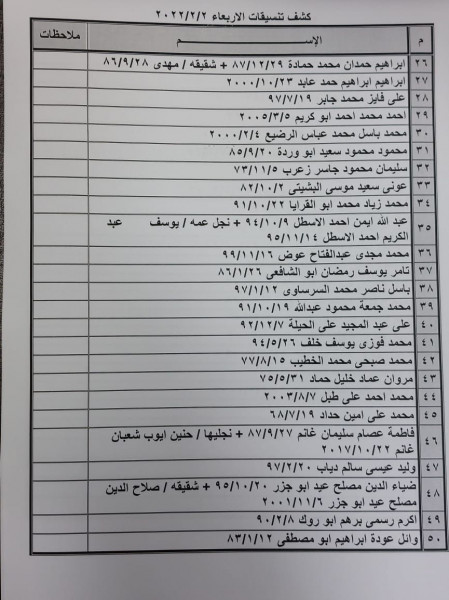 كشف تنسيقات الاربعاء ٢٠٢٢/٢/٢
م الإســـــم ملاحظات
٢٦ ابراهيم حمدان محمد حمادة ٨٧/١٢/٢٩ + شقيقه / مهدى ٨٦/٩/٢٨
٢٧ ابراهيم ابراهيم حمد عابد ٢٠٠٠/١٠/٢٣
٢٨ على فايز محمد جابر ٩٧/٧/١٩
٢٩ احمد محمد احمد ابو كريم ٢٠٠٥/٣/٥
٣٠ محمد باسل محمد عباس الرضيع ٢٠٠٠/٢/٤
٣١ محمود محمود سعيد ابو وردة ٨٥/٩/٢٠
٣٢ سليمان محمود جاسر زعرب ٧٣/١١/٥
٣٣ عونى سعيد موسى البشيتى ٨٢/١٠/٢
٣٤ محمد زياد محمد ابو القرايا ٩١/١٠/٢٢
٣٥ عبد الله ايمن احمد الاسطل ٩٤/١٠/٩ + نجل عمه / يوسف عبد
الكريم احمد الاسطل ٩٥/١١/١٤
٣٦ محمد مجدى عبدالفتاح عوض ٩٩/١١/١٦
٣٧ تامر يوسف رمضان ابو الشافعى ٨٦/١/٢٦
٣٨ باسل ناصر محمد السرساوى ٩٧/١/١٢
٣٩ محمد جمعة محمود عبدالله ٩١/١٠/١٩
٤٠ على عبد المجيد على الحيلة ٩٢/١٢/٧
٤١ محمد فوزى يوسف خلف ٩٤/٥/٢٦
٤٢ محمد صبحى محمد الخطيب ٧٧/٨/١٥
٤٣ مروان عماد خليل حماد ٧٥/٥/٣١
٤٤ محمد احمد على طبل ٢٠٠٣/٨/٧
٤٥ محمد على امين حداد ٦٨/٧/١٩
٤٦ فاطمة عصام سليمان غانم ٨٧/٩/٢٧ + نجليها / حنين ايوب شعبان
غانم ٢٠١٧/١٠/٢٢
٤٧ وليد عيسى سالم دياب ٩٧/٢/٢٠
٤٨ ضياء الدين مصلح عيد ابو جزر ٩٥/١٠/٢٠ + شقيقه / صلاح الدين
مصلح عيد ابو جزر ٢٠٠١/١١/٦
٤٩ اكرم رسمى برهم ابو روك ٩٠/٢/٨
٥٠ وائل عودة ابراهيم ابو مصطفى ٨٣/١/١٢